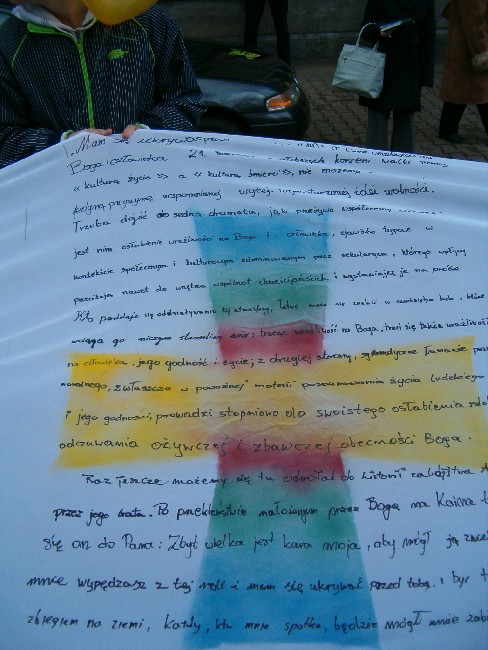 „Mam się ukrywać przed
Boga i człowieka 21. korzeni walki
« kulturą życia » a « kulturą śmierci », nie możemy
jedyną przyczynę wspomnianej wyżej idei wolności.
Trzeba dojść do sedna dramatu, jaki przeżywa współczesny
jest nim osłabienie wrażliwości na Boga i człowieka, zjawisko typowe w
kontekście społecznym i kulturowym zdominowanym przez sekularyzm, którego wpływy
przenikają nawet do wnętrza wspólnot chrześcijańskich i wystawiają je na próbę
Kto poddaje się oddziaływaniu tej atmosfery, łatwo może się znaleźć w koła, które
wciąga go niczym straszliwy wir: tracąc wrażliwość na Boga, traci się także wrażliwość
na człowieka, jego godność i życie; z drugiej strony, systematyczne łamanie prawa
moralnego, zwłaszcza w poważnej materii poszanowania życia ludzkiego
i jego godności, prowadzi stopniowo do swoistego osłabienia zdol
odczuwania ożywczej i zbawczej obecności Boga.
Raz jeszcze możemy się tu odwołać do historii zabójstwa A
przez jego brata. Po przekleństwie nałożonym przez Boga na Kaina t
się on do Pana: Zbyt wielka jest kara moja, aby mógł ją znieść
mnie wypędzasz z tej roli i mam się ukrywać przed tobą, i być t
zbiegiem na ziemi, każdy, kto mnie spotka, będzie mógł mnie zabi